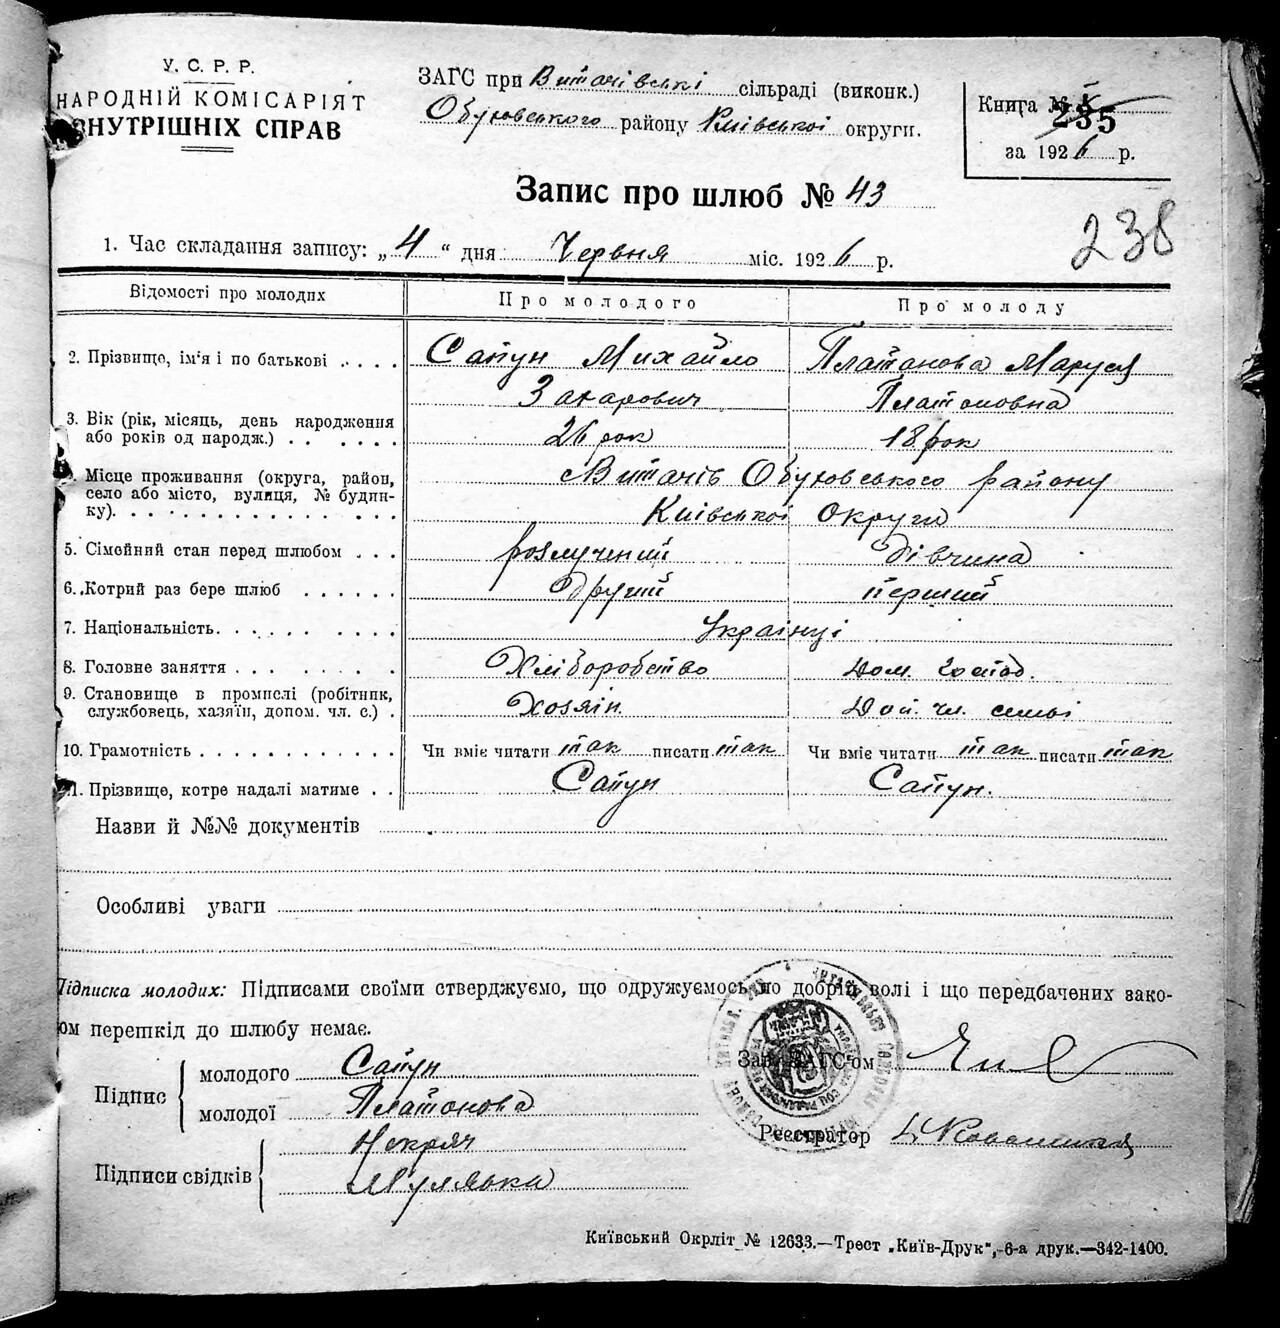 У. С. Р. Р.
НАРОДНІЙ КОМІСАРІЯТ
ВНУТРІШНІХ СПРАВ
ЗАГС при Витачівські сільраді (виконк.)
Обуховського району Київської округи.
Книга № 235
за 1926 р.
Запис про шлюб № 43
238
1. Час складання запису: „4“ дня Червня міс. 1926 р.
Відомості про молодих Про молодого Про молоду
2. Прізвище, ім'я і по батькові Сапун Михайло Платонова Маруся
Захарович Платоновна
3. Вік (рік, місяць, день народження або років од народж.) 26 рок 18 рок
Місце проживання (округа, район, с Витачів Обуховського району
село або місто, вулиця, № будин-
ку). Київської Округи
5. Сімейний стан перед шлюбом розлучений дівчина
6. Котрий раз бере шлюб другий перший
7. Національність Українці
8. Головне заняття Хліборобство дом. господ.
9. Становище в промислі (робітник, службовець, хазяїн, допом. чл. с.) Хозяїн. Доп. чл. семьі
10. Грамотність Чи вміє читати так писати так Чи вміє читати так писати так
11. Прізвище, котре надалі матиме Сапун Сапун.
Назви й №№ документів
Особливі уваги
Підписка молодих: Підписами своїми стверджуємо, що одружуємось по добрій волі і що передбачених зако-
ом перешкід до шлюбу немає.
Підпис молодого Сапун
молодої Платонова
Зав. ЗАГС'ом
Реєстратор
Підписи свідків Нокряч
Мулявка
Київський Окрліт № 12633.—Трест „Київ-Друк“,-6-а друк.—342-1400.